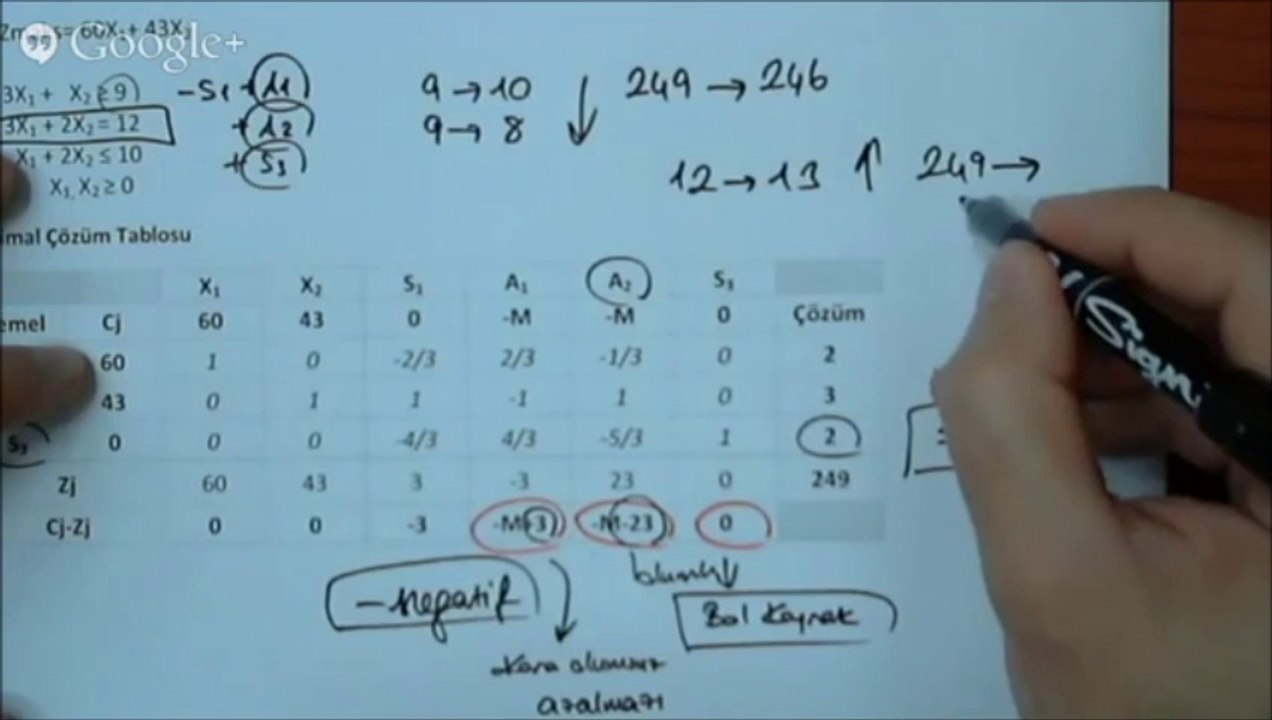 Zmaks= 60X₁+ 43X₂
Google+
3X₁ + X₂ ≥ 9 -S₁ + A1
3X₁ + 2X₂ = 12 + A2
X₁ + 2X₂ ≤ 10 + S3
X₁, X₂ ≥ 0
9 → 10 ↓ 249 → 246
9 → 8
12 → 13 ↑ 249 →
imal Çözüm Tablosu
X₁ X₂ S₁ A₁ A₂ S₃
emel Cj 60 43 0 -M -M 0 Çözüm
60 1 0 -2/3 2/3 -1/3 0 2
43 0 1 1 -1 1 0 3
S₃ 0 0 0 -4/3 4/3 -5/3 1 2
Zj 60 43 3 -3 23 0 249
Cj-Zj 0 0 -3 -M+3 -M-23 0
- Negatif
olumlu
Bol Kaynak
Kara olumsuz
azalması
Sign